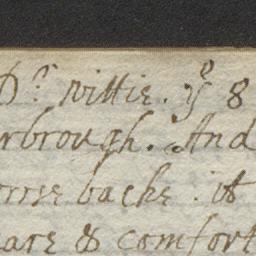 Dr. Wittie. ye 8
rbrough. And
orse backe. it
care & comfort